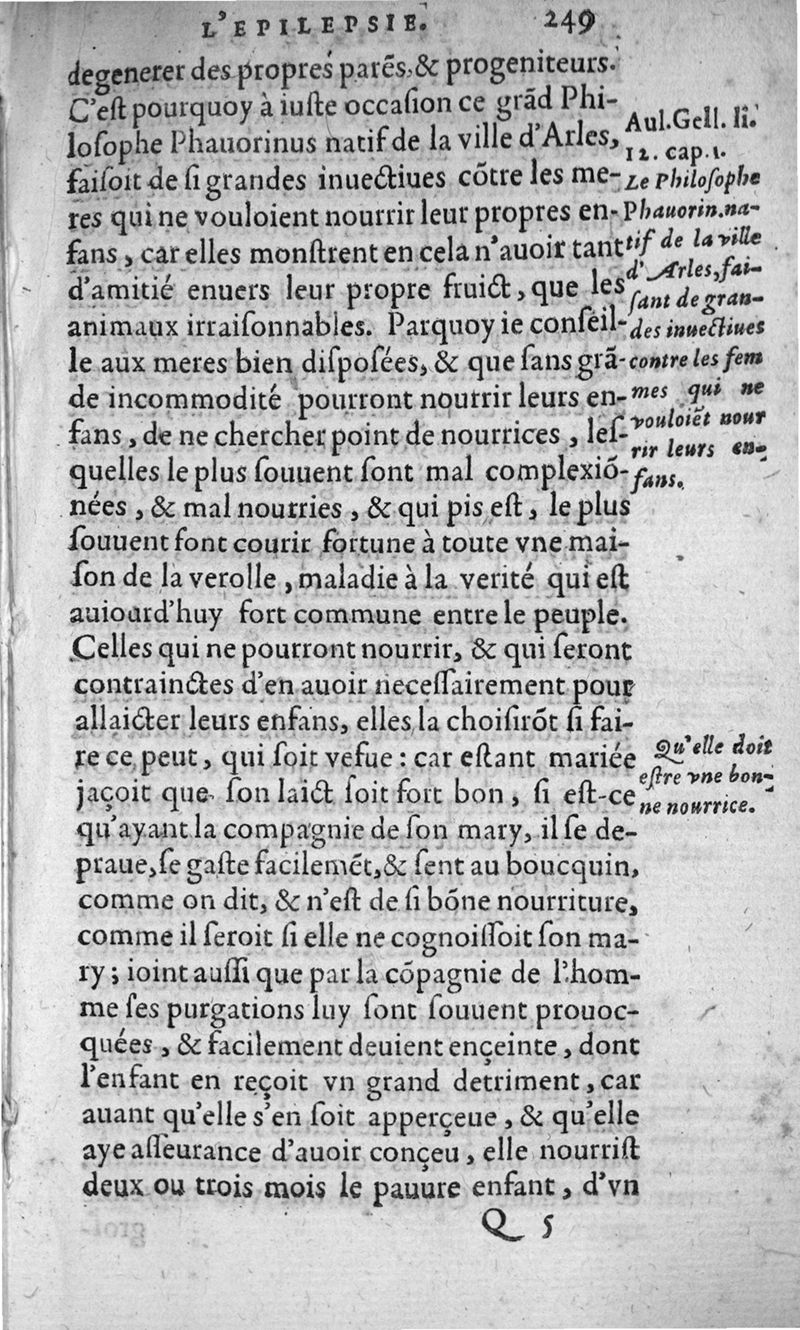 L'EPILEPSIE. 249
degenerer des propres parẽs, & progeniteurs.
C'eſt pourquoy à iuſte occaſion ce grãd Phi-
loſophe Phauorinus natif de la ville d'Arles,
faiſoit de ſi grandes inuectiues cõtre les me-
res qui ne vouloient nourrir leur propres en-
fans, car elles monſtrent en cela n'auoir tant
d'amitié enuers leur propre fruict, que les
animaux irraiſonnables. Parquoy ie conſeil-
le aux meres bien diſpoſées, & que ſans grã-
de incommodité pourront nourrir leurs en-
fans, de ne chercher point de nourrices, leſ-
quelles le plus ſouuent ſont mal complexiõ-
nées, & mal nourries, & qui pis eſt, le plus
ſouuent font courir fortune à toute vne mai-
ſon de la verolle, maladie à la verité qui eſt
auiourd'huy fort commune entre le peuple.
Celles qui ne pourront nourrir, & qui ſeront
contrainctes d'en auoir neceſſairement pour
allaicter leurs enfans, elles la choiſirõt ſi fai-
re ce peut, qui ſoit vefue : car eſtant mariée
jaçoit que ſon laict ſoit fort bon, ſi eſt-ce
qu'ayant la compagnie de ſon mary, il ſe de-
praue, ſe gaſte facilemẽt, & ſent au boucquin,
comme on dit, & n'eſt de ſi bõne nourriture,
comme il ſeroit ſi elle ne cognoiſſoit ſon ma-
ry ; ioint auſſi que par la cõpagnie de l'hom-
me ſes purgations luy ſont ſouuent prouoc-
quées, & facilement deuient ençeinte, dont
l'enfant en reçoit vn grand detriment, car
auant qu'elle s'en ſoit apperçeue, & qu'elle
aye aſſeurance d'auoir conçeu, elle nourriſt
deux ou trois mois le pauure enfant, d'vn
Q 5
Aul. Gell. li.
12. cap. 1.
Le Philoſophe
Phauorin. na-
tif de la ville
d'Arles, fai-
ſant de gran-
des inuectiues
contre les fem
mes qui ne
vouloiẽt nour
rir leurs en-
fans.
Qu'elle doit
eſtre vne bon-
ne nourrice.